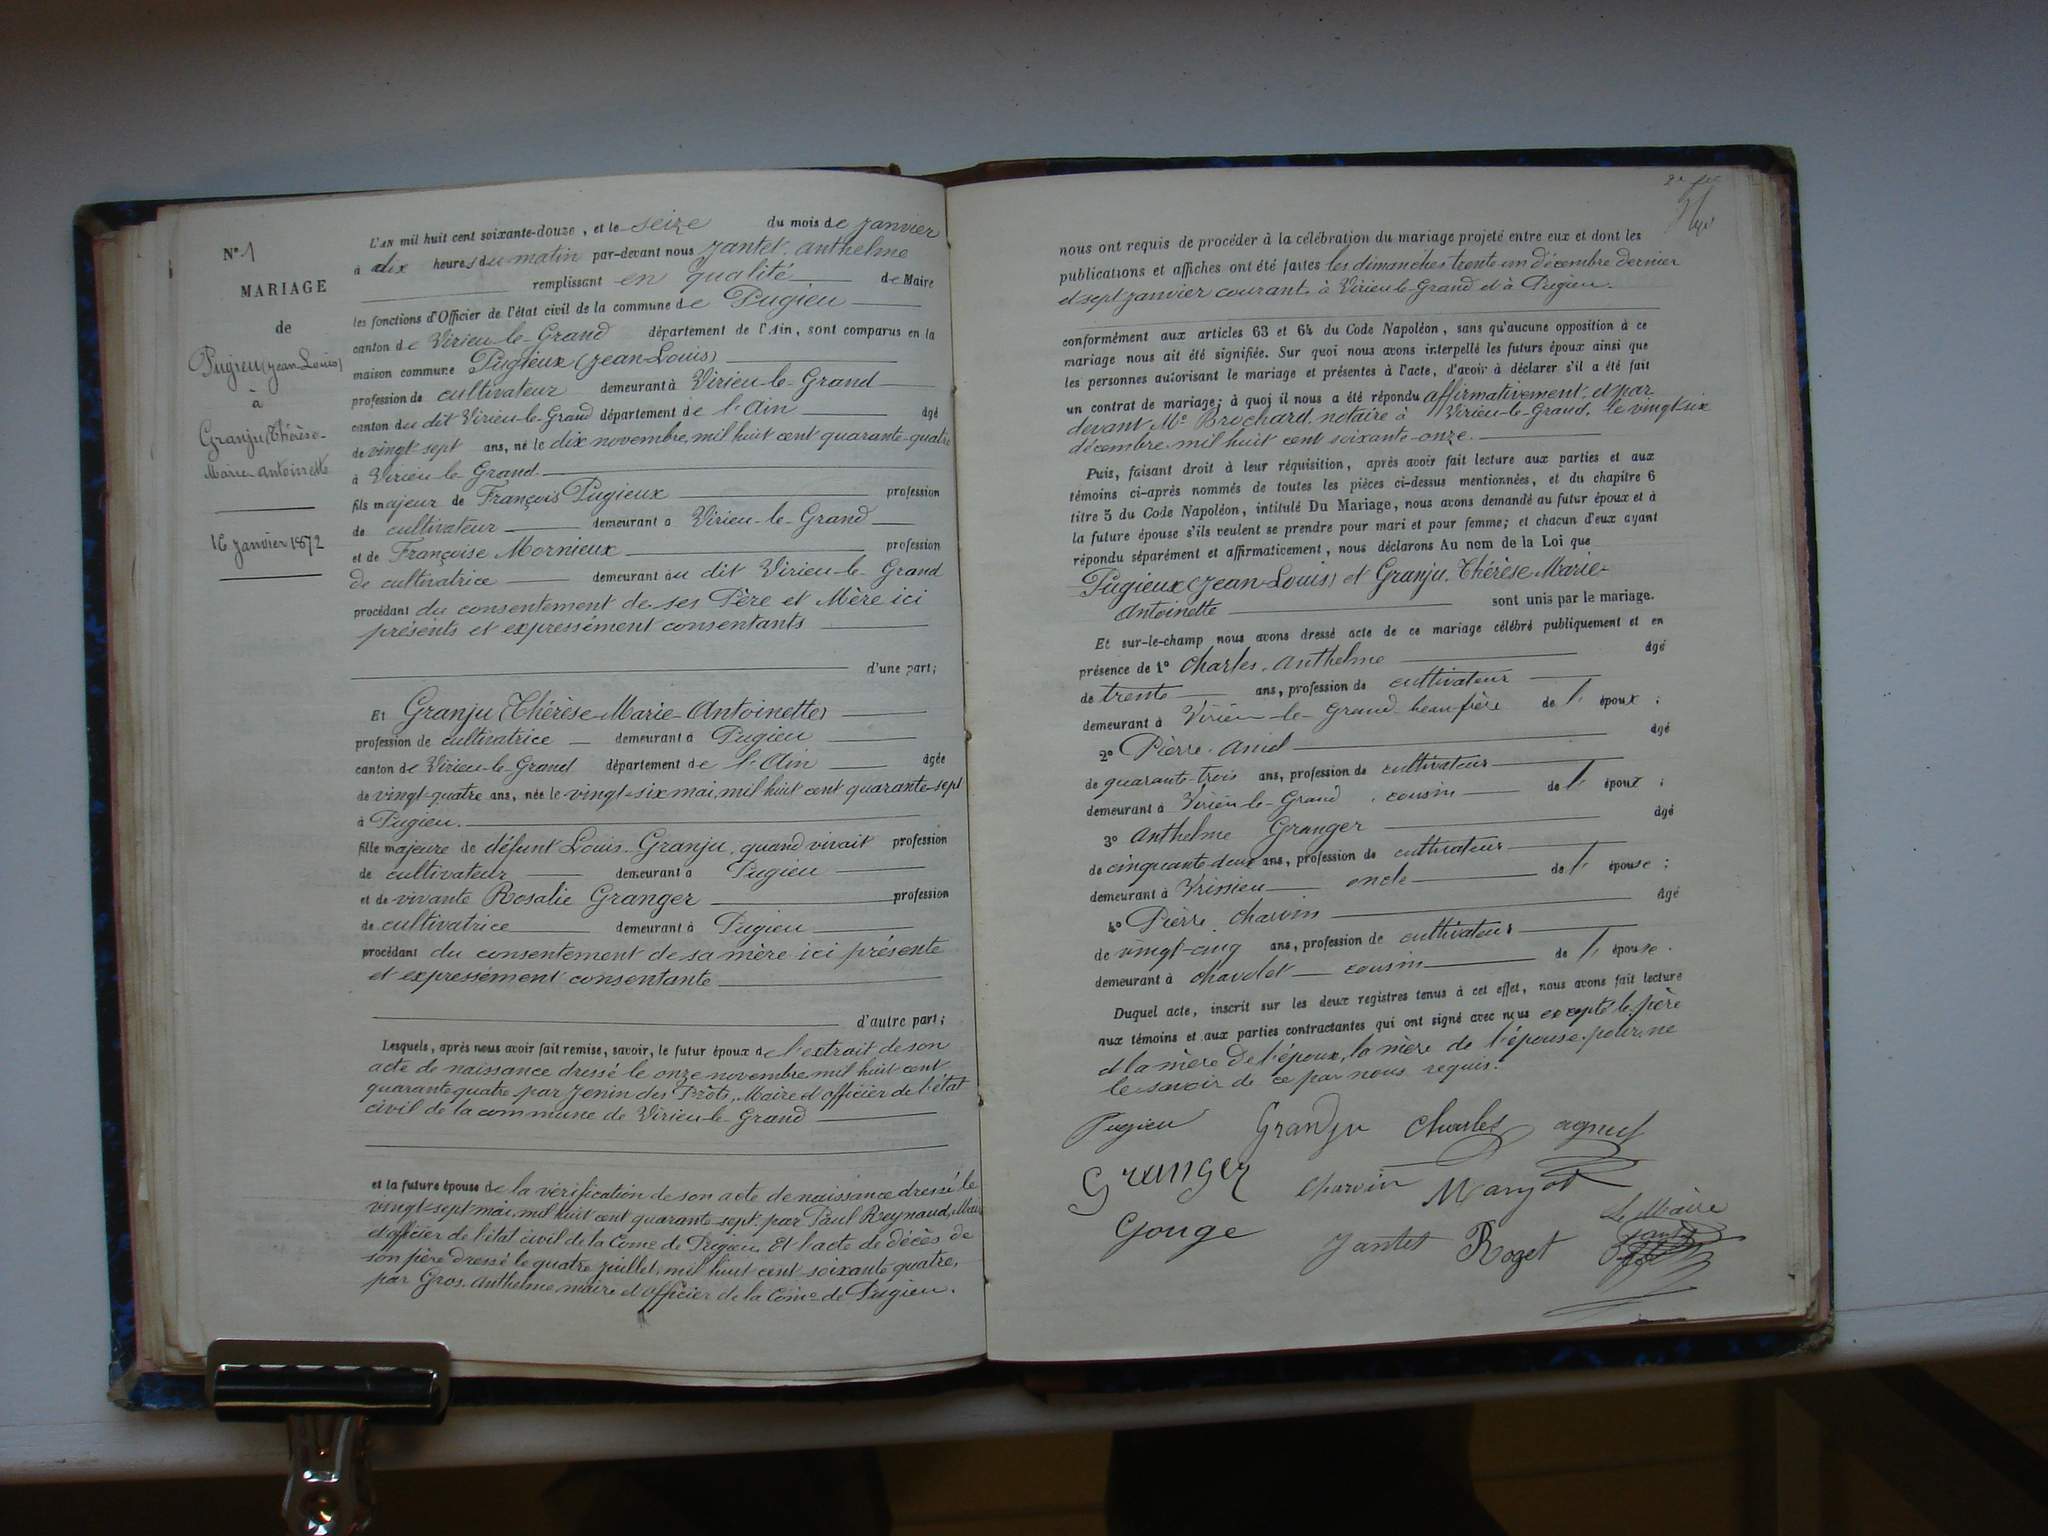 N° 1
MARIAGE
de
Pugieu (Jean Louis)
à
Granju Thérèse-
Marie Antoinette
16 Janvier 1872
L'AN mil huit cent soixante-douze, et le seize du mois de Janvier
à dix heures du matin par-devant nous Jantet Anthelme
remplissant en qualité de Maire
les fonctions d'Officier de l'état civil de la commune de Pugieu
canton de Virieu-le-Grand département de l'Ain, sont comparus en la
maison commune Pugieux (Jean-Louis)
profession de cultivateur demeurant à Virieu-le-Grand
canton du dit Virieu-le-Grand département de l'Ain âgé
de vingt-sept ans, né le dix novembre mil huit cent quarante-quatre
à Virieu-le-Grand
fils majeur de François Pugieux profession
de cultivateur demeurant à Virieu-le-Grand
et de Françoise Mornieux profession
de cultivatrice demeurant au dit Virieu-le-Grand
procédant du consentement de ses Père et Mère ici
présents et expressément consentants
d'une part;
Et Granju (Thérèse-Marie-Antoinette)
profession de cultivatrice demeurant à Pugieu
canton de Virieu-le-Grand département de l'Ain âgée
de vingt-quatre ans, née le vingt-six mai, mil huit cent quarante-sept
à Pugieu.
fille majeure de défunt Louis Granju, quand vivait profession
de cultivateur demeurant à Pugieu
et de vivante Rosalie Granger profession
de cultivatrice demeurant à Pugieu
procédant du consentement de sa mère ici présente
et expressément consentante
d'autre part;
Lesquels, après nous avoir fait remise, savoir, le futur époux de l'extrait de son
acte de naissance dressé le onze novembre mil huit cent
quarante quatre par Jenin des Prôts, Maire et officier de l'état
civil de la commune de Virieu-le-Grand
et la future épouse de la vérification de son acte de naissance dressé le
vingt-sept mai, mil huit cent quarante-sept par Paul Reynaud, Maire
et officier de l'état civil de la Come de Pugieu. Et l'acte de décès de
son père dressé le quatre juillet, mil huit cent soixante quatre,
par Gros. Anthelme, maire et officier de la Come de Pugieu.
nous ont requis de procéder à la célébration du mariage projeté entre eux et dont les
publications et affiches ont été faites les dimanches trente un décembre dernier
et sept janvier courant à Virieu-le-Grand et à Pugieu.
conformément aux articles 63 et 64 du Code Napoléon, sans qu'aucune opposition à ce
mariage nous ait été signifiée. Sur quoi nous avons interpellé les futurs époux ainsi que
les personnes autorisant le mariage et présentes à l'acte, d'avoir à déclarer s'il a été fait
un contrat de mariage; à quoi il nous a été répondu affirmativement et par
devant Me Brochard, notaire à Virieu-le-Grand, le vingt six
décembre mil huit cent soixante-onze.
Puis, faisant droit à leur réquisition, après avoir fait lecture aux parties et aux
témoins ci-après nommés de toutes les pièces ci-dessus mentionnées, et du chapitre 6
titre 5 du Code Napoléon, intitulé Du Mariage, nous avons demandé au futur époux et à
la future épouse s'ils veulent se prendre pour mari et pour femme; et chacun d'eux ayant
répondu séparément et affirmativement, nous déclarons Au nom de la Loi que
Pugieux (Jean-Louis) et Granju, Thérèse-Marie-
Antoinette sont unis par le mariage.
Et sur-le-champ nous avons dressé acte de ce mariage célébré publiquement et en
présence de 1° Charles. Anthelme âgé
de trente ans, profession de cultivateur
demeurant à Virieu-le-Grand beau-frère de l' époux;
2° Pierre. Aniel âgé
de quarante-trois ans, profession de cultivateur
demeurant à Virieu-le-Grand, cousin de l' époux;
3° Anthelme Granger âgé
de cinquante-deux ans, profession de cultivateur
demeurant à Vrissieu oncle de l' épouse;
4° Pierre. Charvin âgé
de vingt-cinq ans, profession de cultivateur
demeurant à cousin de l' épouse.
Duquel acte, inscrit sur les deux registres tenus à cet effet, nous avons fait lecture
aux témoins et aux parties contractantes qui ont signé avec nous excepté le père
et la mère de l'époux, la mère de l'épouse, pour ne
le savoir de ce par nous requis.
Pugieu Granju Charles
Granger Charvin Manjot
Le Maire
Gouge Jantet Rozet Jantet